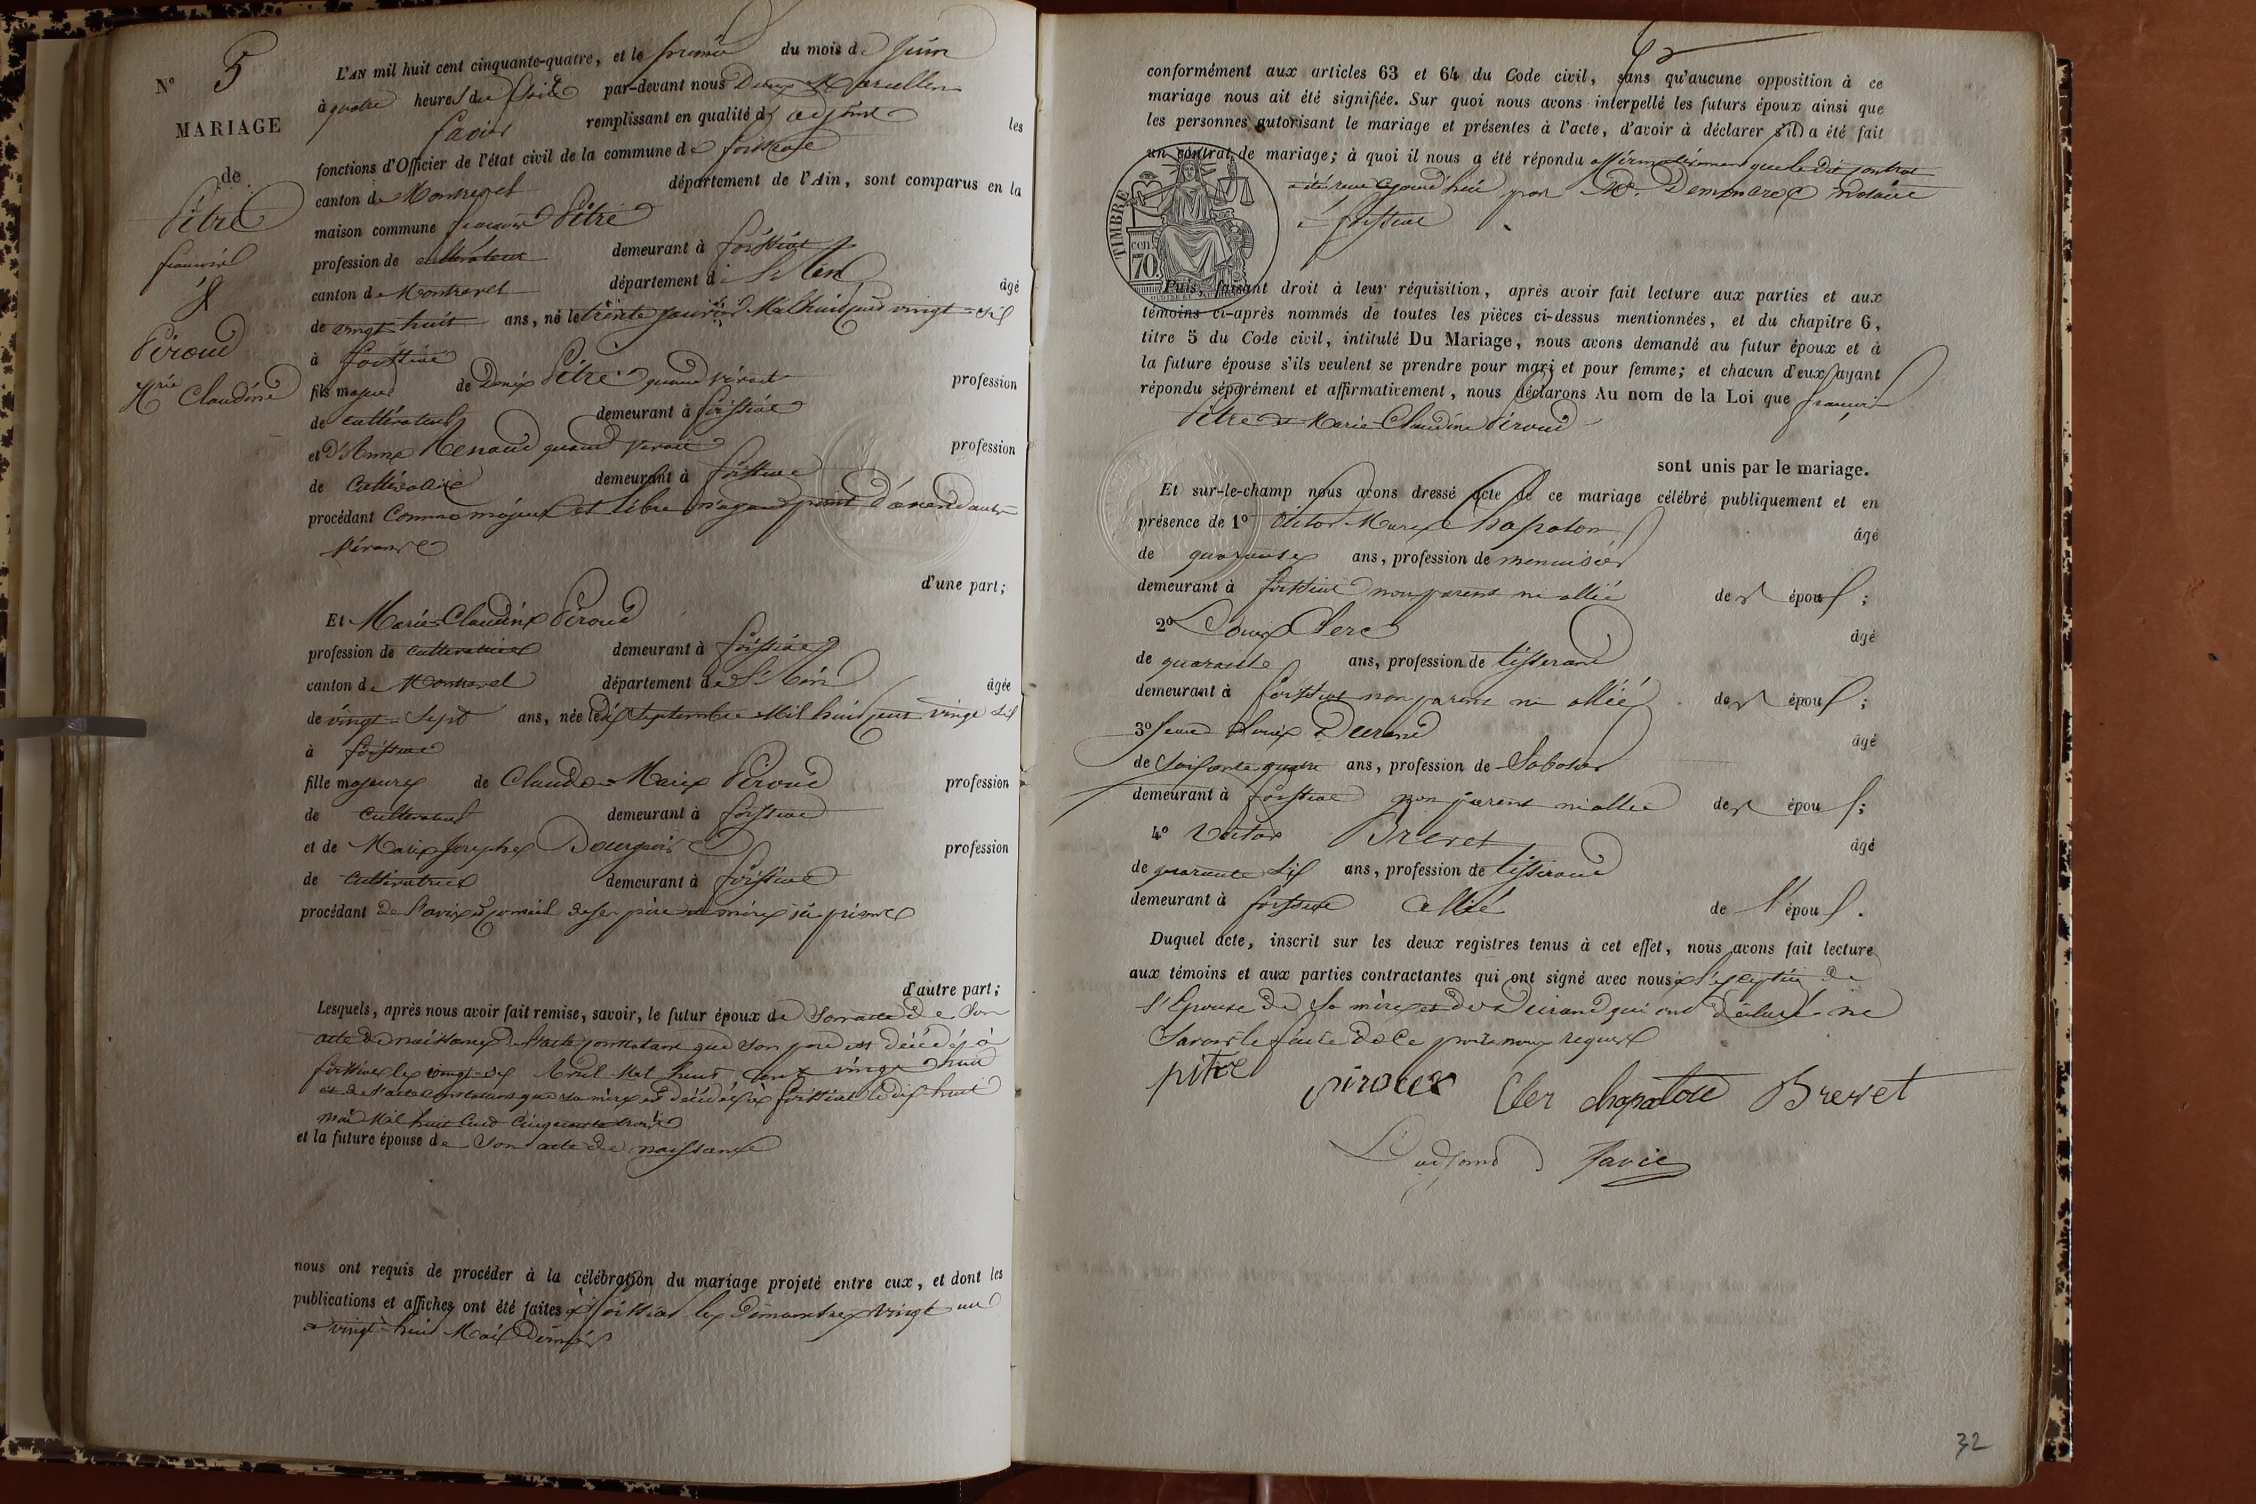 N° 5
MARIAGE
de
Pitre
françois
&
Piroud
Mrie Claudine
L'AN mil huit cent cinquante-quatre, et le premier du mois de Juin
à quatre heures du soir par-devant nous Marcellin
favier remplissant en qualité d'adjoint les
fonctions d'Officier de l'état civil de la commune de foissiat
canton de Montrevel département de l'Ain, sont comparus en la
maison commune françois Pitre
profession de cultivateur demeurant à foissiat
canton de Montrevel département de l'Ain âgé
de vingt-huit ans, né le trente janvier Mil huit cent vingt-six
à foissiat
fils majeur de Denix Pitre quand vivait profession
de cultivateur demeurant à foissiat
et d'Anne Renaud quand vivait profession
de Cultivatrice demeurant à foissiat
procédant Comme majeur et libre n'ayant point d'ascendants
d'une part;
Et Marie-Claudine Piroud
profession de cultivatrice demeurant à foissiat
canton de Montrevel département de l'Ain âgée
de vingt-sept ans, née le dix septembre Mil huit cent vingt six
à foissiat
fille majeure de Claude-Marie Piroud profession
de Cultivateur demeurant à foissiat
et de Marie Josephe Bourgeois profession
de Cultivatrice demeurant à foissiat
procédant de l'avis et conseil de ses père et mère ici présents
d'autre part;
Lesquels, après nous avoir fait remise, savoir, le futur époux de Son
acte de naissance de l'acte constatant que son père est décédé à
foissiat le vingt-six Avril Mil huit cent vingt huit
et de l'acte constatant que sa mère est décédée à foissiat le dix huit
mai Mil huit Cent Cinquante trois
et la future épouse de Son acte de naissance
nous ont requis de procéder à la célébration du mariage projeté entre eux, et dont les
publications et affiches ont été faites à foissiat les Dimanches vingt un
et vingt-huit Mai Dernier
conformément aux articles 63 et 64 du Code civil, sans qu'aucune opposition à ce
mariage nous ait été signifiée. Sur quoi nous avons interpellé les futurs époux ainsi que
les personnes autorisant le mariage et présentes à l'acte, d'avoir à déclarer s'il a été fait
un contrat de mariage; à quoi il nous a été répondu affirmativement que le dit contrat
a été reçu aujourd'hui par Me. notaire
à foissiat
TIMBRE
cen
70
Puis, faisant droit à leur réquisition, après avoir fait lecture aux parties et aux
témoins ci-après nommés de toutes les pièces ci-dessus mentionnées, et du chapitre 6,
titre 5 du Code civil, intitulé Du Mariage, nous avons demandé au futur époux et à
la future épouse s'ils veulent se prendre pour mari et pour femme; et chacun d'eux ayant
répondu séparément et affirmativement, nous déclarons Au nom de la Loi que françois
Pitre et Marie-Claudine Piroud
sont unis par le mariage.
Et sur-le-champ nous avons dressé acte de ce mariage célébré publiquement et en
présence de 1° Victor Marie Chapolon âgé
de quarante ans, profession de menuisier
demeurant à foissiat non parent ni allié des époux;
2° Louis Clerc âgé
de quarante ans, profession de tisserand
demeurant à foissiat non parent ni allié des époux;
3° Jean Louis Durand âgé
de soixante quatre ans, profession de Sabotier
demeurant à foissiat non parent ni allié des époux;
4° Victor Brevet âgé
de quarante six ans, profession de tisserand
demeurant à foissiat allié de l'époux.
Duquel acte, inscrit sur les deux registres tenus à cet effet, nous avons fait lecture
aux témoins et aux parties contractantes qui ont signé avec nous à l'exception de
l'Epouse de Sa mère et de Durand qui ont déclaré ne
Savoir le faire de ce par nous requis
pitre piroux Cler chapolon Brevet
L'adjoint favie
32